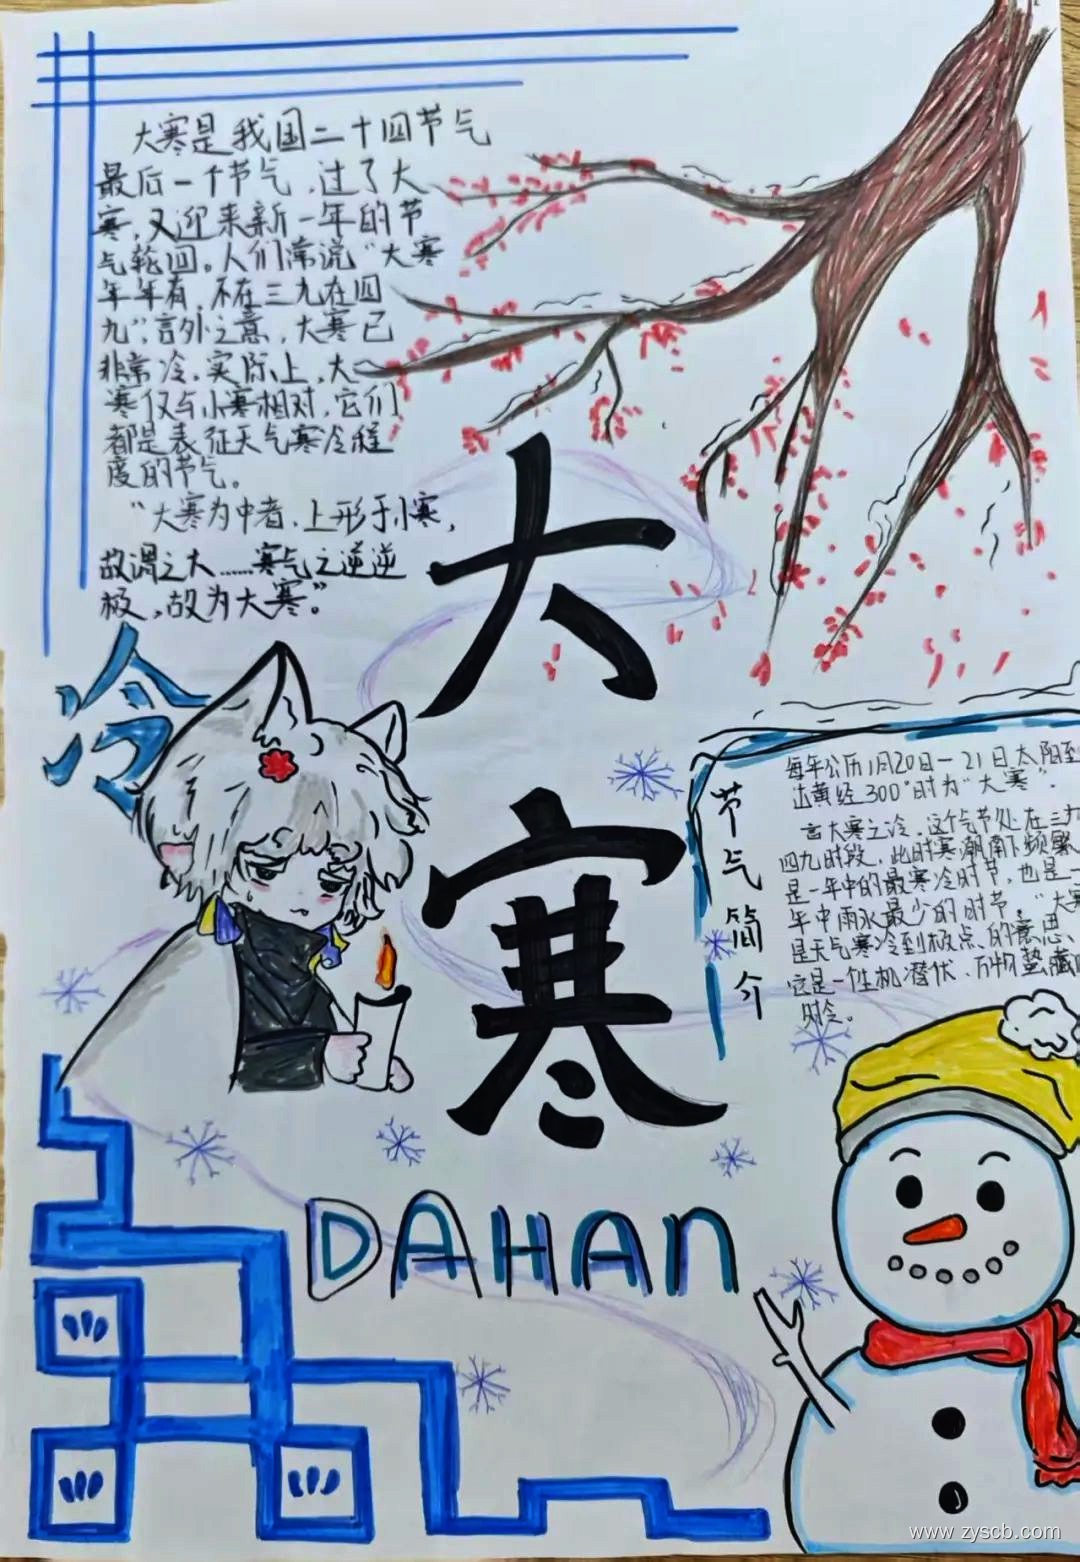 大寒是我国二十四节气
最后一个节气，过了大
寒，又迎来新一年的节
气轮回。人们常说“大寒
年年有，不在三九在四
九”，言外之意，大寒已
非常冷，实际上，大
寒仅与小寒相对，它们
都是表征天气寒冷程
度的节气。
“大寒为中者，上形于小寒，
故谓之大……寒气之逆逆
极，故为大寒”。
冷
大
寒
DAHAN
节气简介
每年公历1月20日一21日太阳到
达黄经300°时为“大寒”.
言大寒之冷，这个气节处在三九
四九时段，此时寒潮南下频繁
是一年中的最寒冷时节，也是一
年中雨水最少的时节，“大寒
是天气寒冷到极点的意思、
这是一个生机潜伏、万物蛰藏
时令。
www.zyscb.com